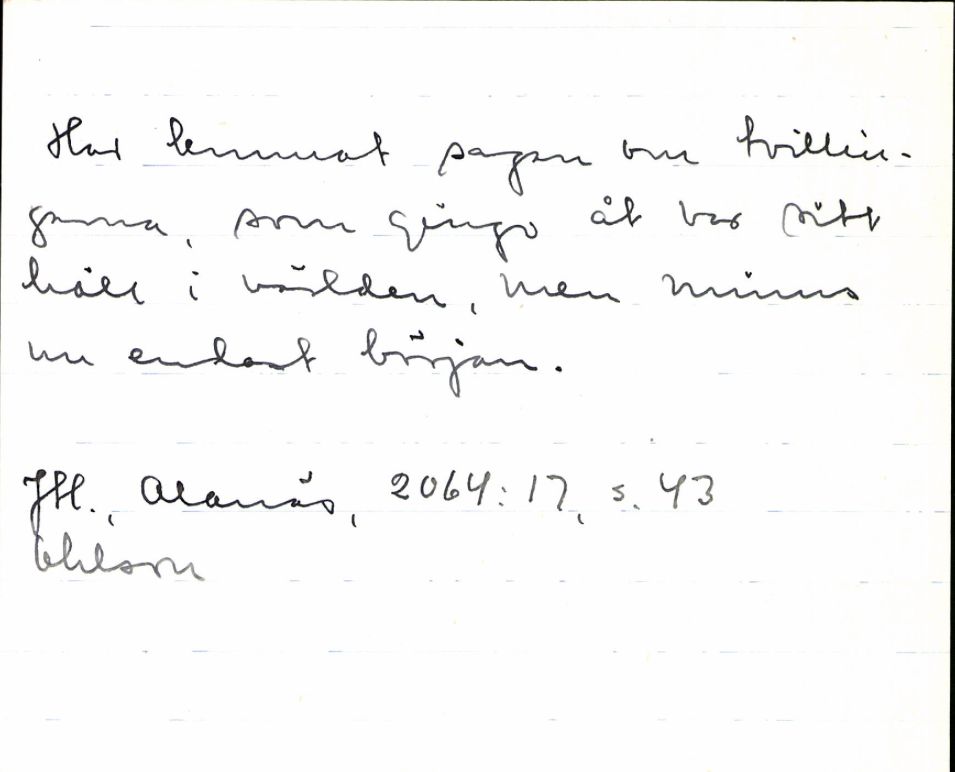 Har kunnat sagan om tvillin-
garna, som gingo åt var sitt
håll i världen, men minns
nu endast början.
Jtl., Alanäs, 2064:17, s. 43